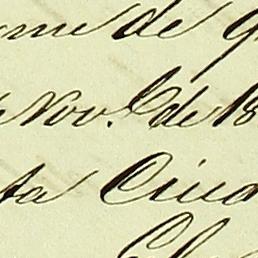 me de q
Nov.e de 18
ta Ciud